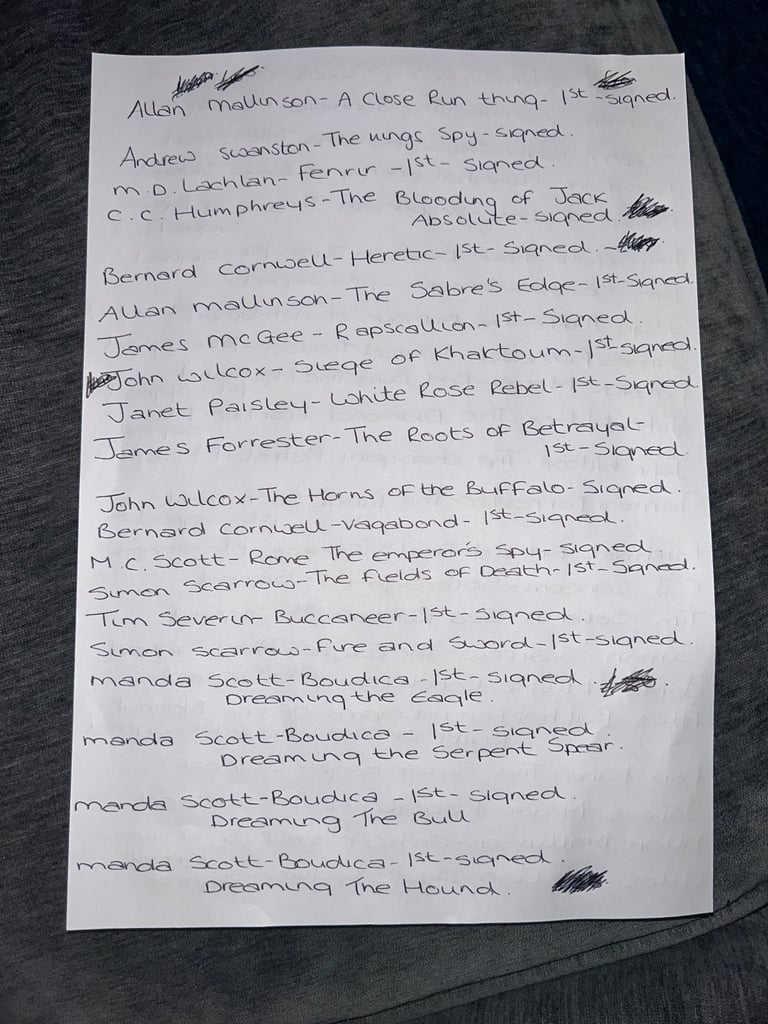 Allan Mallinson- A Close Run thing- 1st-signed.
Andrew Swanston-The Kings Spy-signed.
M.D. Lachlan- Fenrir -1st- Signed.
C.C. Humphreys-The Blooding of Jack
Absolute-signed
Bernard Cornwell-Heretic-1st-Signed.-
Allan Mallinson-The Sabre's Edge-1st-Signed.
James McGee - Rapscallion-1st-Signed.
John Wilcox- Siege of Khartoum-1st-signed.
Janet Paisley-White Rose Rebel-1st-Signed
James Forrester-The Roots of Betrayal-
1st-Signed.
John Wilcox-The Horns of the Buffalo-Signed.
Bernard Cornwell-Vagabond-1st-Signed.
M.C. Scott-Rome The emperor's Spy-signed.
Simon Scarrow-The Fields of Death-1st-Signed.
Tim Severin-Buccaneer-1st-signed.
Simon Scarrow-Fire and Sword-1st-signed.
Manda Scott-Boudica-1st-signed.
Dreaming the Eagle.
Manda Scott-Boudica-1st-signed.
Dreaming the Serpent Spear.
Manda Scott-Boudica-1st-signed.
Dreaming The Bull
Manda Scott-Boudica-1st-signed.
Dreaming The Hound.